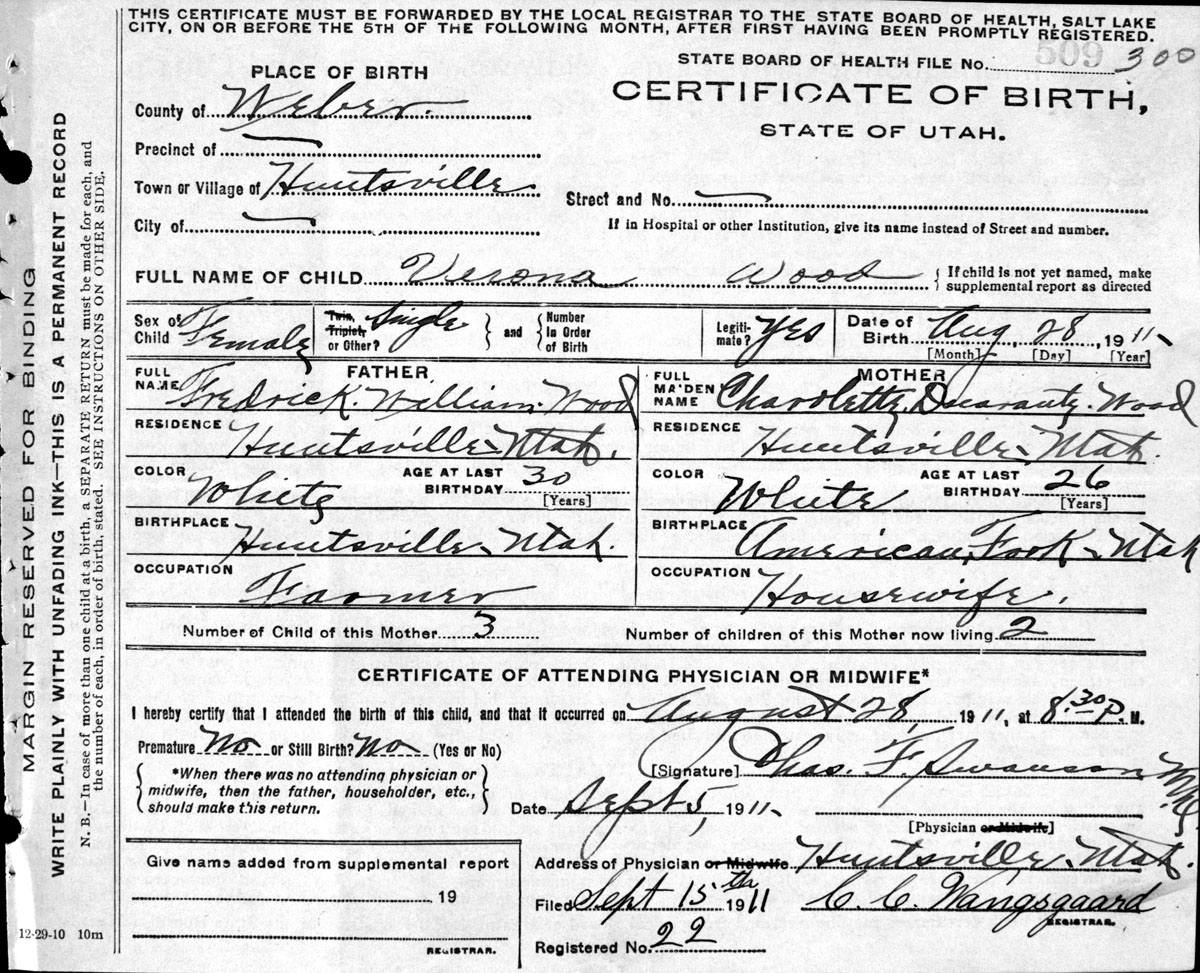 THIS CERTIFICATE MUST BE FORWARDED BY THE LOCAL REGISTRAR TO THE STATE BOARD OF HEALTH, SALT LAKE
CITY, ON OR BEFORE THE 5TH OF THE FOLLOWING MONTH, AFTER FIRST HAVING BEEN PROMPTLY REGISTERED.
509
STATE BOARD OF HEALTH FILE No. 300
CERTIFICATE OF BIRTH,
STATE OF UTAH.
PLACE OF BIRTH
County of Weber.
Precinct of
Town or Village of Huntsville
City of
Street and No.
If in Hospital or other Institution, give its name instead of Street and number.
FULL NAME OF CHILD Verona Wood { If child is not yet named, make
supplemental report as directed
Sex of
Child Female
Twin,
Triplet,
or Other? Single } and { Number
In Order
of Birth
Legiti-
mate? Yes
Date of
Birth Aug, 28, 1911
[Month] [Day] [Year]
FATHER
FULL
NAME Fredrick. William. Wood
RESIDENCE Huntsville Utah.
COLOR White
AGE AT LAST
BIRTHDAY 30
[Years]
BIRTHPLACE Huntsville Utah.
OCCUPATION Farmer
MOTHER
FULL
MAIDEN
NAME Charolette Wood
RESIDENCE Huntsville Utah.
COLOR White
AGE AT LAST
BIRTHDAY 26
[Years]
BIRTHPLACE American Fork Utah
OCCUPATION Housewife.
Number of Child of this Mother 3
Number of children of this Mother now living 2
CERTIFICATE OF ATTENDING PHYSICIAN OR MIDWIFE*
I hereby certify that I attended the birth of this child, and that it occurred on August 28, 1911, at 8.30 P. M.
Premature No or Still Birth? No (Yes or No)
{ *When there was no attending physician or
midwife, then the father, householder, etc.,
should make this return. }
[Signature] Chas. F. Swanson
Date Sept 5, 1911
[Physician or Midwife]
Address of Physician or Midwife Huntsville Utah.
Filed Sept 15th 1911 C. C. Wangsgaard
REGISTRAR.
Registered No. 22
Give name added from supplemental report
19
REGISTRAR.
12-29-10 10m
MARGIN RESERVED FOR BINDING
WRITE PLAINLY WITH UNFADING INK—THIS IS A PERMANENT RECORD
N. B.—In case of more than one child at a birth, a SEPARATE RETURN must be made for each, and
the number of each, in order of birth, stated. SEE INSTRUCTIONS ON OTHER SIDE.